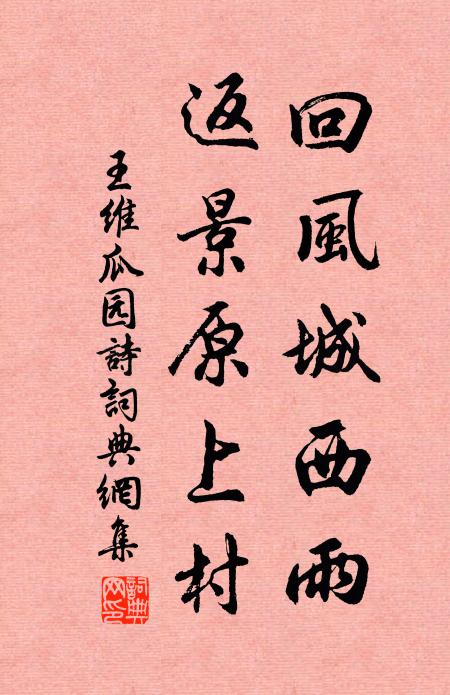 回風城西雨
返景原上村
王維瓜园詩詞典網集
詞典网印